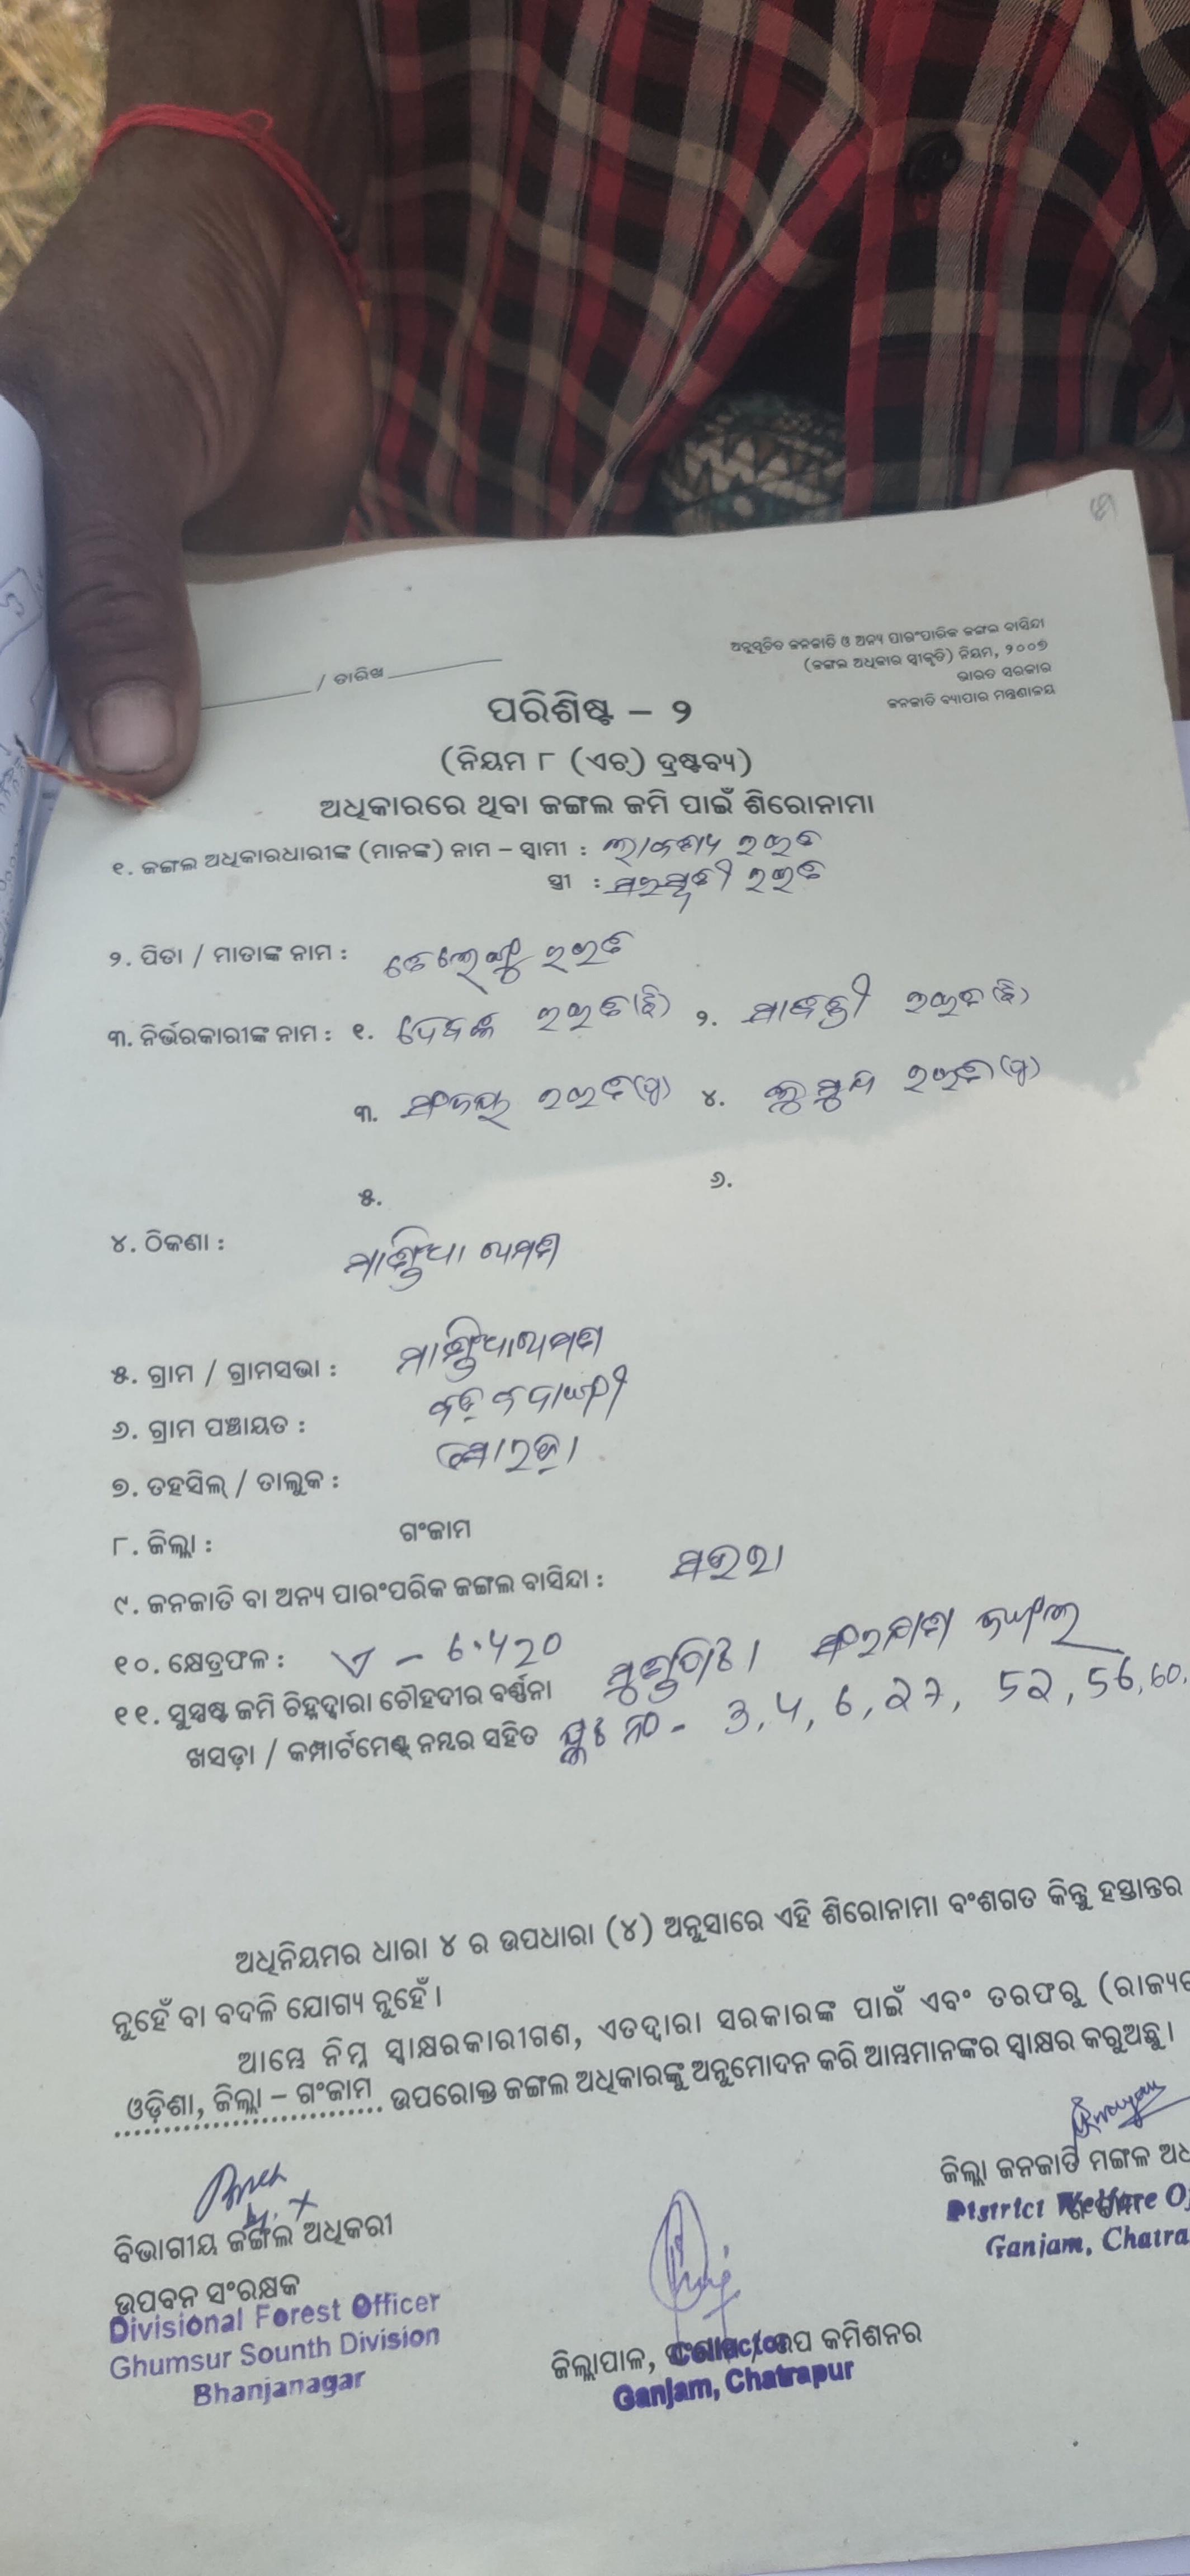 ଅନୁସୂଚିତ ଜନଜାତି ଓ ଅନ୍ୟ ପାରଂପାରିକ ଜଙ୍ଗଲ ବାସିନ୍ଦା
(ଜଙ୍ଗଲ ଅଧିକାର ସ୍ୱୀକୃତି) ନିୟମ, ୨୦୦୭
ଭାରତ ସରକାର
ଜନଜାତି ବ୍ୟାପାର ମନ୍ତ୍ରଣାଳୟ
/ ତାରିଖ
ପରିଶିଷ୍ଟ – ୨
(ନିୟମ ୮ (ଏଚ୍) ଦ୍ରଷ୍ଟବ୍ୟ)
ଅଧିକାରରେ ଥିବା ଜଙ୍ଗଲ ଜମି ପାଇଁ ଶିରୋନାମା
୧. ଜଙ୍ଗଲ ଅଧିକାରଧାରୀଙ୍କ (ମାନଙ୍କ) ନାମ – ସ୍ୱାମୀ : ରଇତ
ସ୍ତ୍ରୀ : ସରସ୍ୱତୀ ରଇତ
୨. ପିତା / ମାତାଙ୍କ ନାମ : ରଇତ
୩. ନିର୍ଭରକାରୀଙ୍କ ନାମ : ୧. ରଇତ (ଝି) ୨. ସାବିତ୍ରୀ ରଇତ (ଝି)
୩. ସଂଜୟ ରଇତ (ପୁ) ୪. ରଇତ (ପୁ)
୫. ୬.
୪. ଠିକଣା :
୫. ଗ୍ରାମ / ଗ୍ରାମସଭା :
୬. ଗ୍ରାମ ପଞ୍ଚାୟତ :
୭. ତହସିଲ୍ / ତାଲୁକ : ସୋରଡ଼ା
୮. ଜିଲ୍ଲା : ଗଂଜାମ
୯. ଜନଜାତି ବା ଅନ୍ୟ ପାରଂପରିକ ଜଙ୍ଗଲ ବାସିନ୍ଦା : ସଉରା
୧୦. କ୍ଷେତ୍ରଫଳ : ଏ –
୧୧. ସୁସ୍ପଷ୍ଟ ଜମି ଚିହ୍ନଦ୍ୱାରା ଚୌହଦୀର ବର୍ଣ୍ଣନା ଜଙ୍ଗଲ
ଖସଡ଼ା / କମ୍ପାର୍ଟମେଣ୍ଟ୍ ନମ୍ବର ସହିତ ପ୍ଲଃ ନଂ - 3, 4, 6, 27, 52, 56, 60,
ଅଧିନିୟମର ଧାରା ୪ ର ଉପଧାରା (୪) ଅନୁସାରେ ଏହି ଶିରୋନାମା ବଂଶଗତ କିନ୍ତୁ ହସ୍ତାନ୍ତର
ନୁହେଁ ବା ବଦଳି ଯୋଗ୍ୟ ନୁହେଁ ।
ଆମ୍ଭେ ନିମ୍ନ ସ୍ୱାକ୍ଷରକାରୀଗଣ, ଏତଦ୍ୱାରା ସରକାରଙ୍କ ପାଇଁ ଏବଂ ତରଫରୁ
ଓଡ଼ିଶା, ଜିଲ୍ଲା – ଗଂଜାମ ଉପରୋକ୍ତ ଜଙ୍ଗଲ ଅଧିକାରଙ୍କୁ ଅନୁମୋଦନ କରି ଆମ୍ଭମାନଙ୍କର ସ୍ୱାକ୍ଷର କରୁଅଛୁ ।
ବିଭାଗୀୟ ଜଙ୍ଗଲ ଅଧିକରୀ
ଉପବନ ସଂରକ୍ଷକ
Divisional Forest Officer
Ghumsur Sounth Division
Bhanjanagar
ଜିଲ୍ଲାପାଳ, ଉପ କମିଶନର
Collector
Ganjam, Chatrapur
ଜିଲ୍ଲା ଜନଜାତି ମଙ୍ଗଳ
District Welfare
Ganjam,